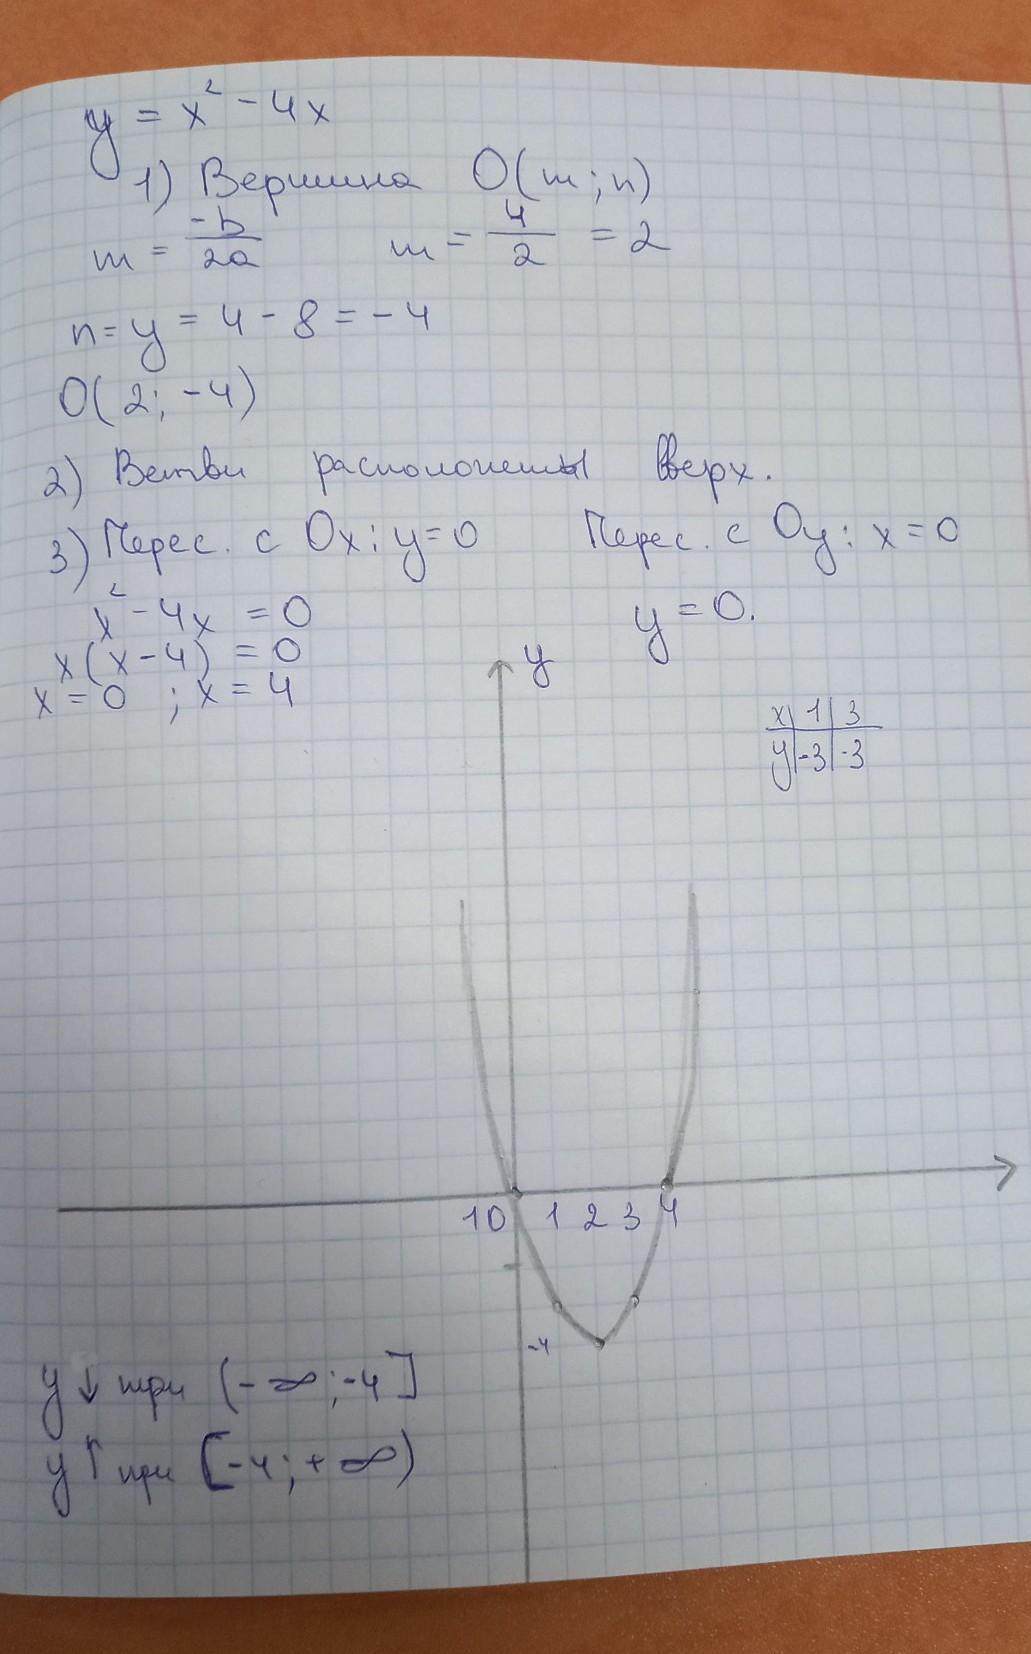 y = x² - 4x
1) Вершина O(m; n)
m = -b/2a m = 4/2 = 2
n = y = 4 - 8 = -4
O(2; -4)
2) Ветви расположены вверх.
3) Перес. с Ox: y=0 Перес. с Oy: x=0
x² - 4x = 0 y = 0.
x(x-4) = 0
x = 0 ; x = 4
y
x | 1 | 3
y | -3 | -3
1 0 1 2 3 4
-4
y↓ при (-∞; -4]
y↑ при [-4; +∞)